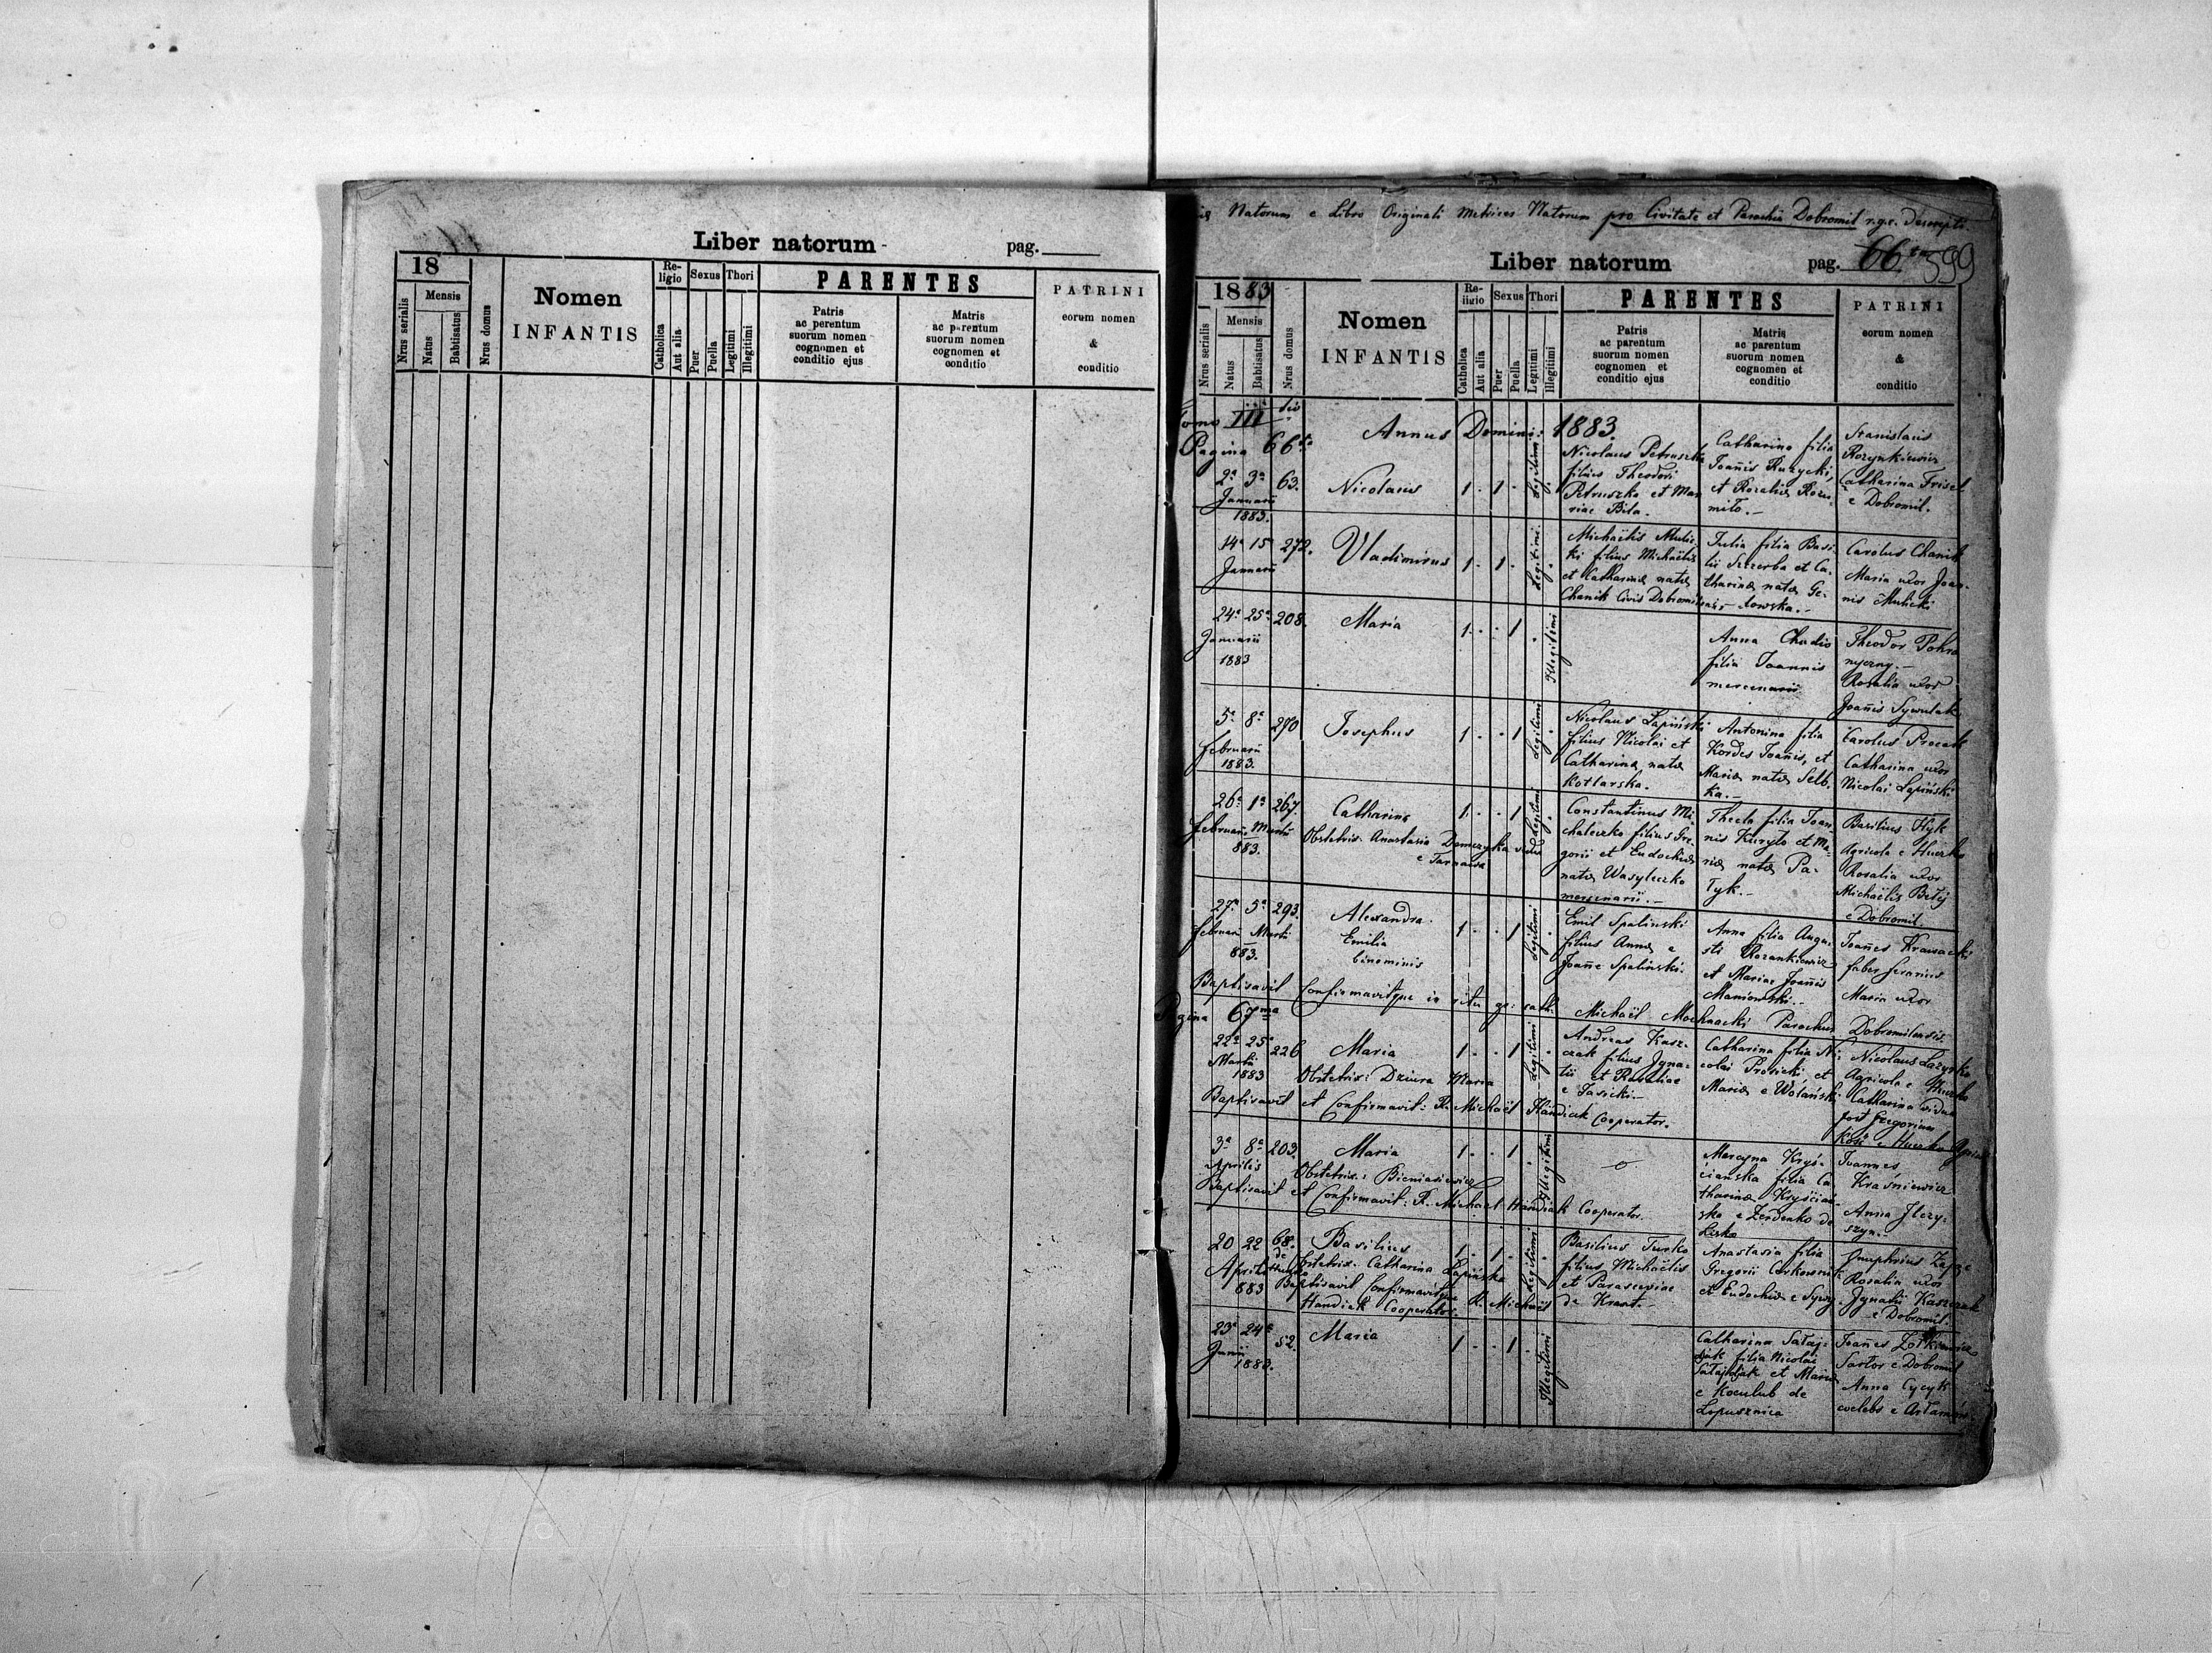 Liber natorum
pag.
18
Nrus serialis
Mensis
Natus
Babtisatus
Nrus domus
Nomen
INFANTIS
Re-
ligio
Catholica
Aut alia
Sexus
Puer
Puella
Thori
Legitimi
Illegitimi
PARENTES
Patris
ac perentum
suorum nomen
cognomen et
conditio ejus
Matris
ac parentum
suorum nomen
cognomen et
conditio
PATRINI
eorum nomen
&
conditio
Natorum e Libro Originali Metrices Natorum pro Civitate et Parochia Dobromil r.g.c. Descripti.
Liber natorum
pag. 66 599
1883
Nrus serialis
Mensis
Natus
Babtisatus
Nrus domus
Nomen
INFANTIS
Re-
ligio
Catholica
Aut alia
Sexus
Puer
Puella
Thori
Legitimi
Illegitimi
PARENTES
Patris
ac parentum
suorum nomen
cognomen et
conditio ejus
Matris
ac parentum
suorum nomen
cognomen et
conditio
PATRINI
eorum nomen
&
conditio
Tomo III
Pagina 66
Annus Domini: 1883.
2ª 3ª 63.
Januarii
1883.
Nicolaus
1 . 1 .
Legitimi
Nicolaus Petruszka
filius Theodori
Petruszko et Ma
riae Bila.
Catharina filia
Joañis Ruzycki,
et Rozalia Rozu-
miło.-
Stanislaus
Rozynkiewicz
Catharina Frisel
e Dobromil.
14ª 15ª 272.
Januarii
Vladimirus
1 . 1 .
Legitimi
Michaëlis Mulic-
ki filius Michaëlis
et Catharinæ natæ
Chanik Civis Dobromilensis
Julia filia Basi-
lii Szczerba et Ca-
tharinæ natæ Ge-
łowska.-
Carolus Chanik
Maria uxor Joan-
nis Mulicki
24ª 25ª 208.
Januarii
1883
Maria
1 . . 1
Illegitimi
Anna Chudio
filia Joannis
mercenarii
Theodor Pohra
nyczny.-
Rosalia uxor
Joañis Sywulak.
5ª 8ª 270
Februarii
1883.
Josephus
1 . . 1
Legitimi
Nicolaus Łapiński
filius Nicolai et
Catharina natæ
Kotlarska.
Antonina filia
Kordes Joañis, et
Mariæ natæ Selb-
ka.-
Carolus Procak
Catharina uxor
Nicolai Łapiński
26ª 1ª 267.
Februarii Martii
883.
Catharina
Obstetrix Anastasia Demczyska vidua
e Tarnawa
1 . . 1
Legitimi
Constantinus Mi
chaleczko filius Gre-
gorii et Eudochiæ
natæ Wasyleczko
mercenarii.-
Thecla filia Joan-
nis Kuryło et Ma-
riæ natæ Pa-
tyk.-
Basilius Hyk
Agricola e Huczko
Rosalia uxor
Michaëlis Betej
e Dobromil.
27ª 5ª 293.
Februarii Martii
883.
Alexandra
Emilia
binominis
1 . . 1
Legitimi
Emil Spalinski
filius Annæ e
Joañe Spalinski.
Anna filia Augu-
sti Rozankiewicz
et Mariae Joañis
Maniowski.-
Joañes Krawacki
faber ferarius
Maria uxor
Baptisavit Confirmavitque in ritu gr: cath: Michaël Mochnacki Parochus Dobromilensis.
Pagina 67ma
22ª 25ª 226
Martii
1883
Maria
Obstetrix: Dziura Maria
1 . . 1
Legitimi
Andreas Kasz-
czak filius Igna-
tii et Rosaliae
e Jasicki.-
Catharina filia Ni-
colai Prosicki et
Mariæ e Wolański
Nicolaus Łazyrko
Agricola e Huczko
Catharina vidua
post Gregorium
Baptisavit et Confirmavit: R. Michaël Handiak Cooperator.
3ª 8ª 203.
Aprilis
Maria
Obstetrix: Bieniasiewicz
Baptisavit et Confirmavit: R. Michael Handiak Cooperator.
1 . . 1
Illegitimi
Maryna Kryś-
ciańska filia Ca
tharinæ Kryściań-
ska e Zerdenko de
Lisko
Joannes
Kraśniewicz
Anna Jlczy-
szyn.-
20 22 68.
de Huczko
Aprilis
883
Basilius
Obstetrix: Catharina Łapińska
Baptisavit Confirmavitque R. Michael
Handiak Cooperator.
1 . 1 .
Legitimi
Basilius Turko
filius Michaëlis
et Parasceviae
de Krant.-
Anastasia filia
Gregorii Corkownik
et Eudochiæ e Syroz
Onuphrius Zapze
Rosalia uxor
Ignatii Kaszczak
e Dobromil.
23ª 24ª 52.
Junii
1883.
Maria
1 . . 1
Illegitimi
Catharina Sałaj-
filia Nicolai
et Mariæ
e Koculub de
Lopusznica
Joañes Zołkiewicz
Sartor e Dobromil
Anna Cycyk
coelebs e